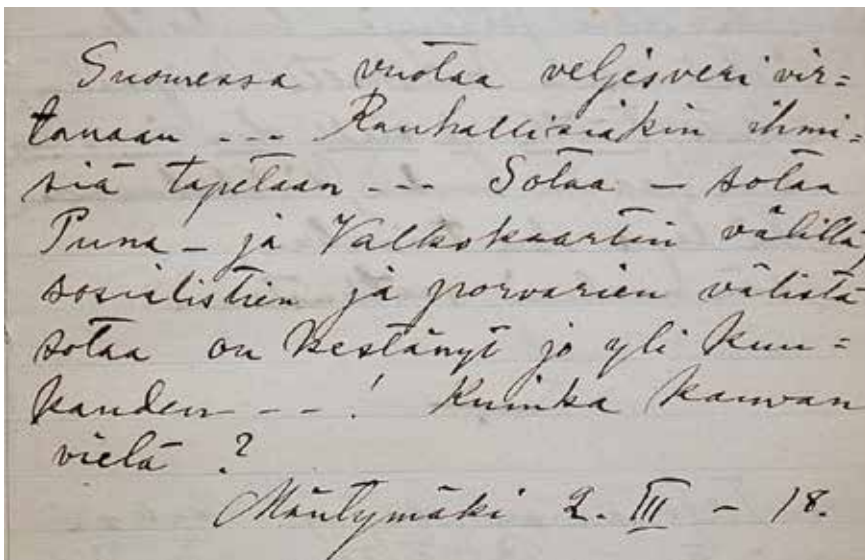 Suomessa vuotaa veljesveri vir=
tanaan --- Rauhallisiakin ihmi=
siä tapetaan --- Sotaa – sotaa
Puna – ja Valkokaartin välillä,
sosialistien ja porvarien välistä
sotaa on kestänyt jo yli kuu=
kauden --- ! Kuinka kauvan
vielä ?
Mäntymäki 2. III – 18.